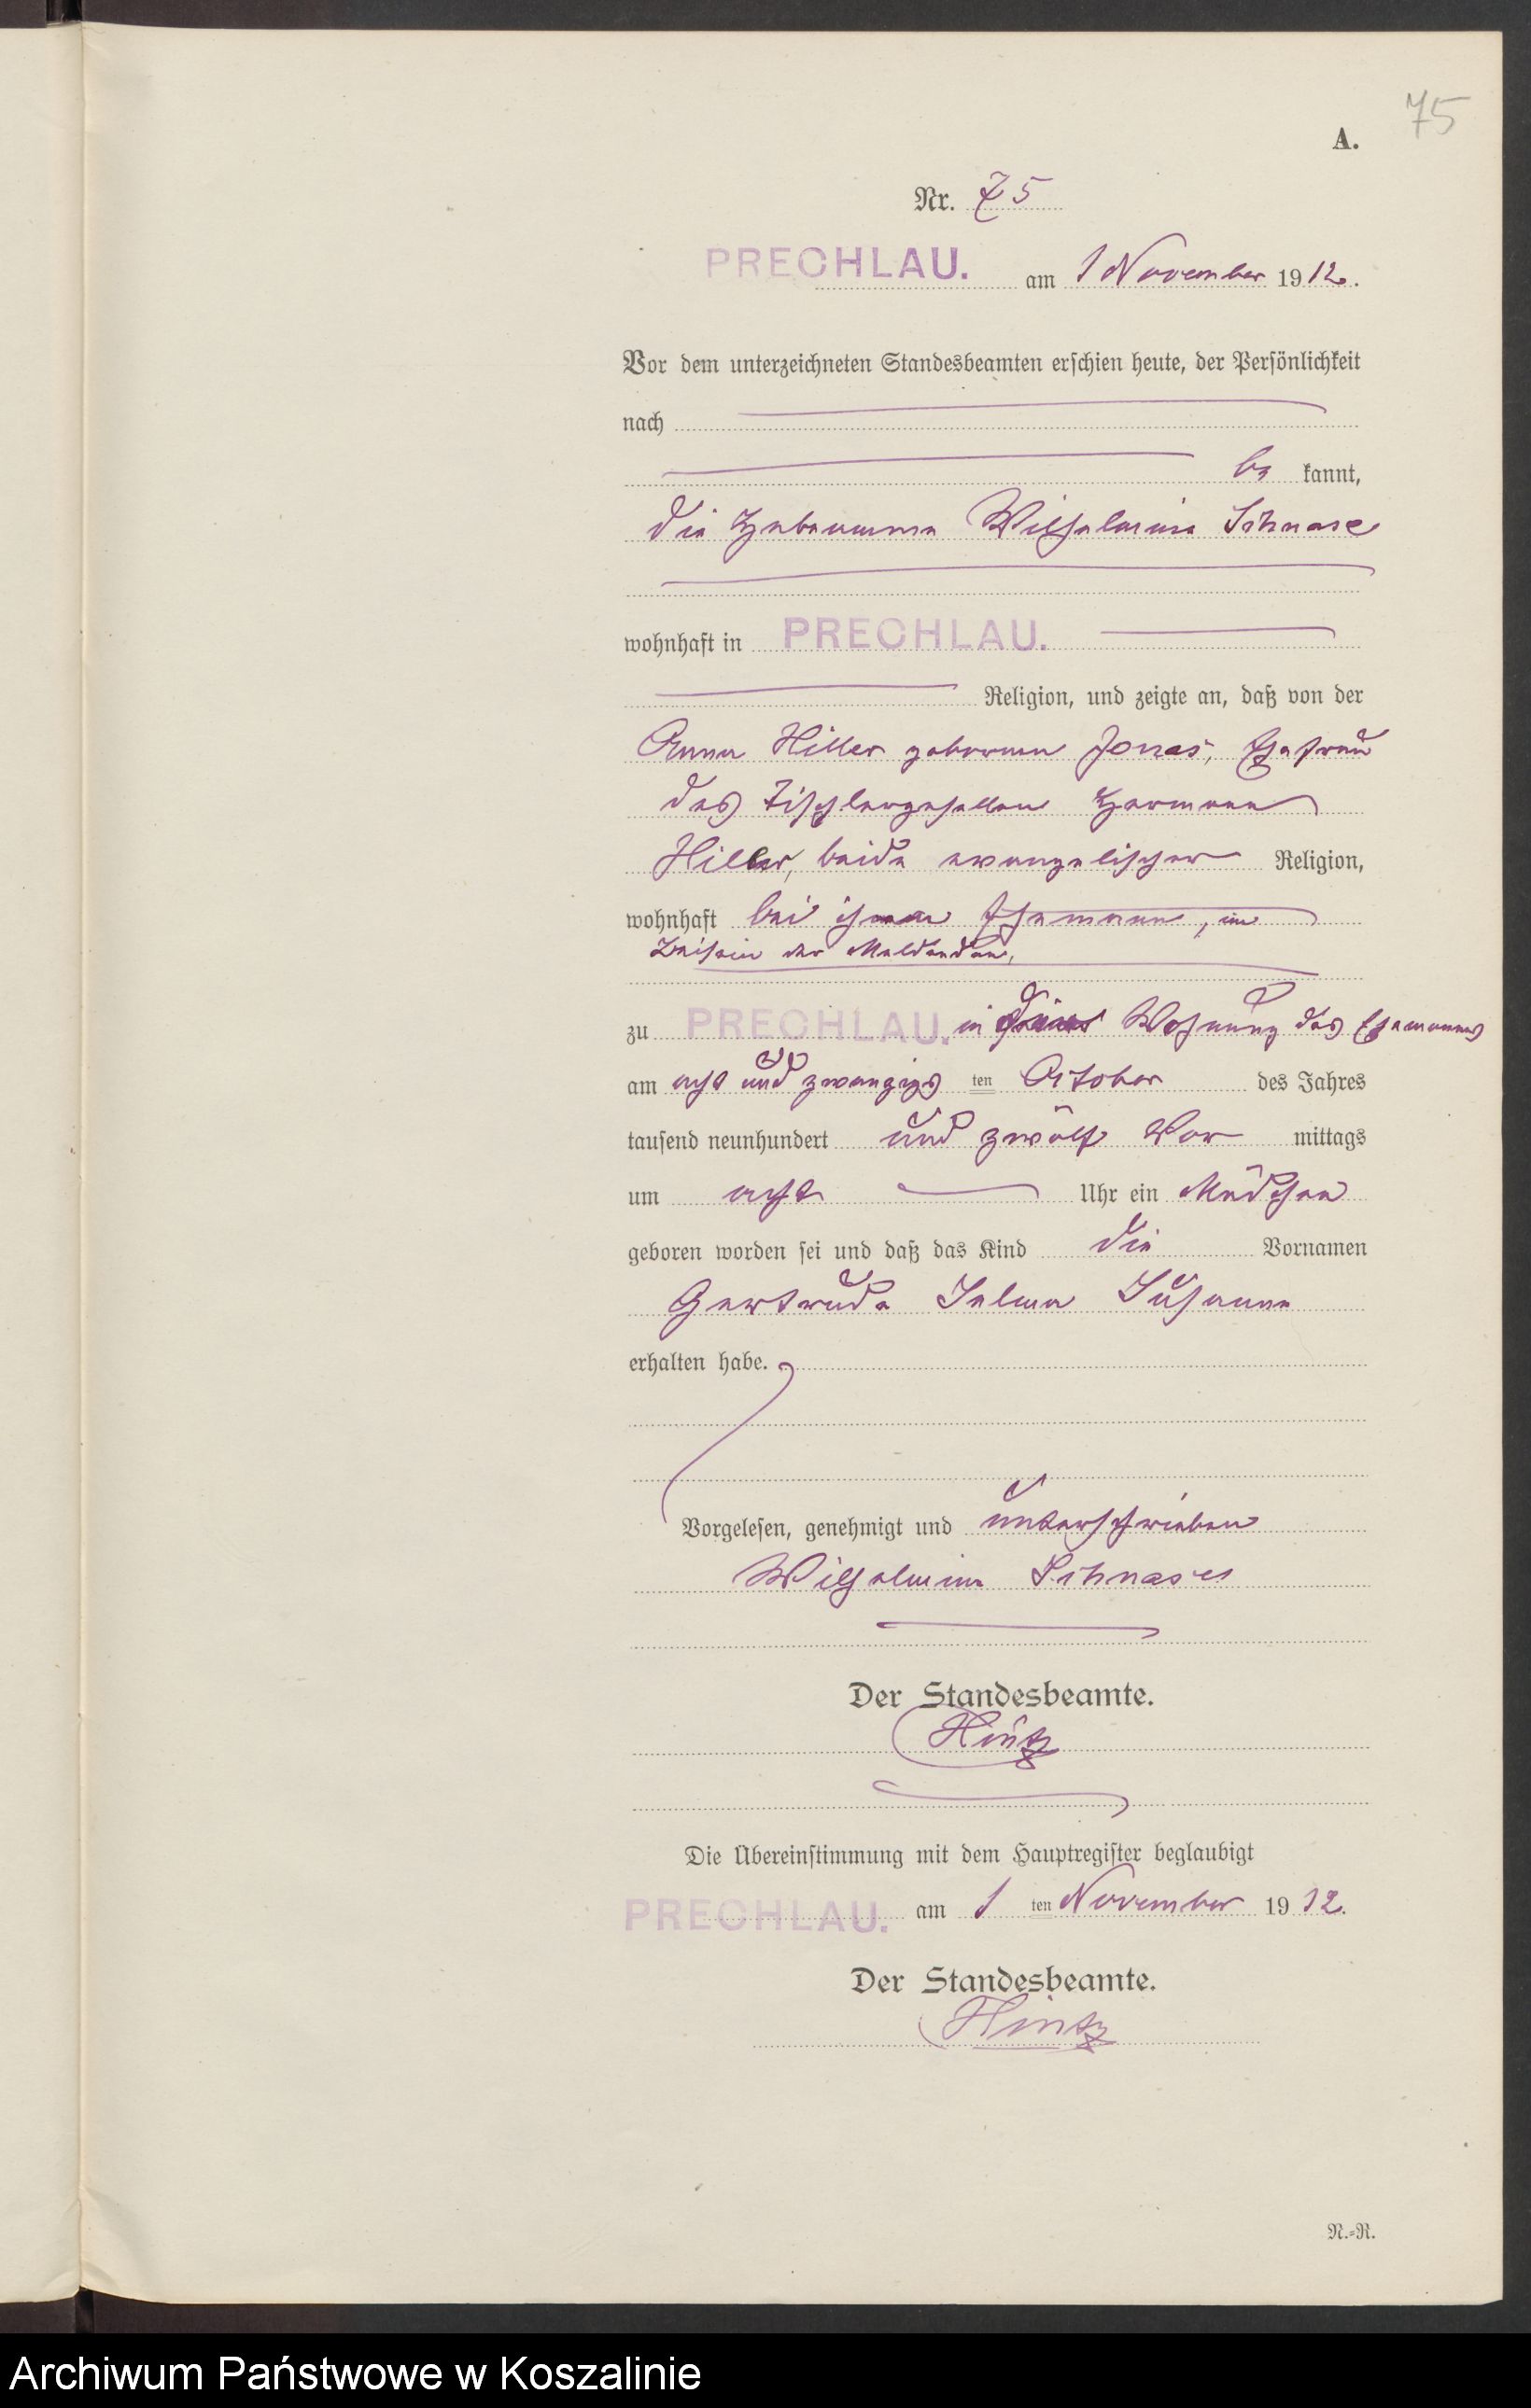 75
A.
Nr. 75
PRECHLAU. am 1 November 1912.
Vor dem unterzeichneten Standesbeamten erschien heute, der Persönlichkeit
nach
be kannt,
die Hebamme Wilhelmine Schnase
wohnhaft in PRECHLAU.
Religion, und zeigte an, daß von der
Anna Hiller geborenen Jonas, Ehefrau
des Tischlergesellen Hermann
Hiller, beide evangelischer Religion,
wohnhaft bei ihrem Ehemann, im
Beisein der Meldenden,
zu PRECHLAU. in Wohnung des Ehemannes
am acht und zwanzigs ten October des Jahres
tausend neunhundert und zwölf Vor mittags
um acht Uhr ein Mädchen
geboren worden sei und daß das Kind die Vornamen
Gertrude Selma Susanna
erhalten habe.
Vorgelesen, genehmigt und unterschrieben
Wilhelmine Schnase
Der Standesbeamte.
Hintz
Die Übereinstimmung mit dem Hauptregister beglaubigt
PRECHLAU. am 1 ten November 1912.
Der Standesbeamte.
Hintz
N.=R.
Archiwum Państwowe w Koszalinie